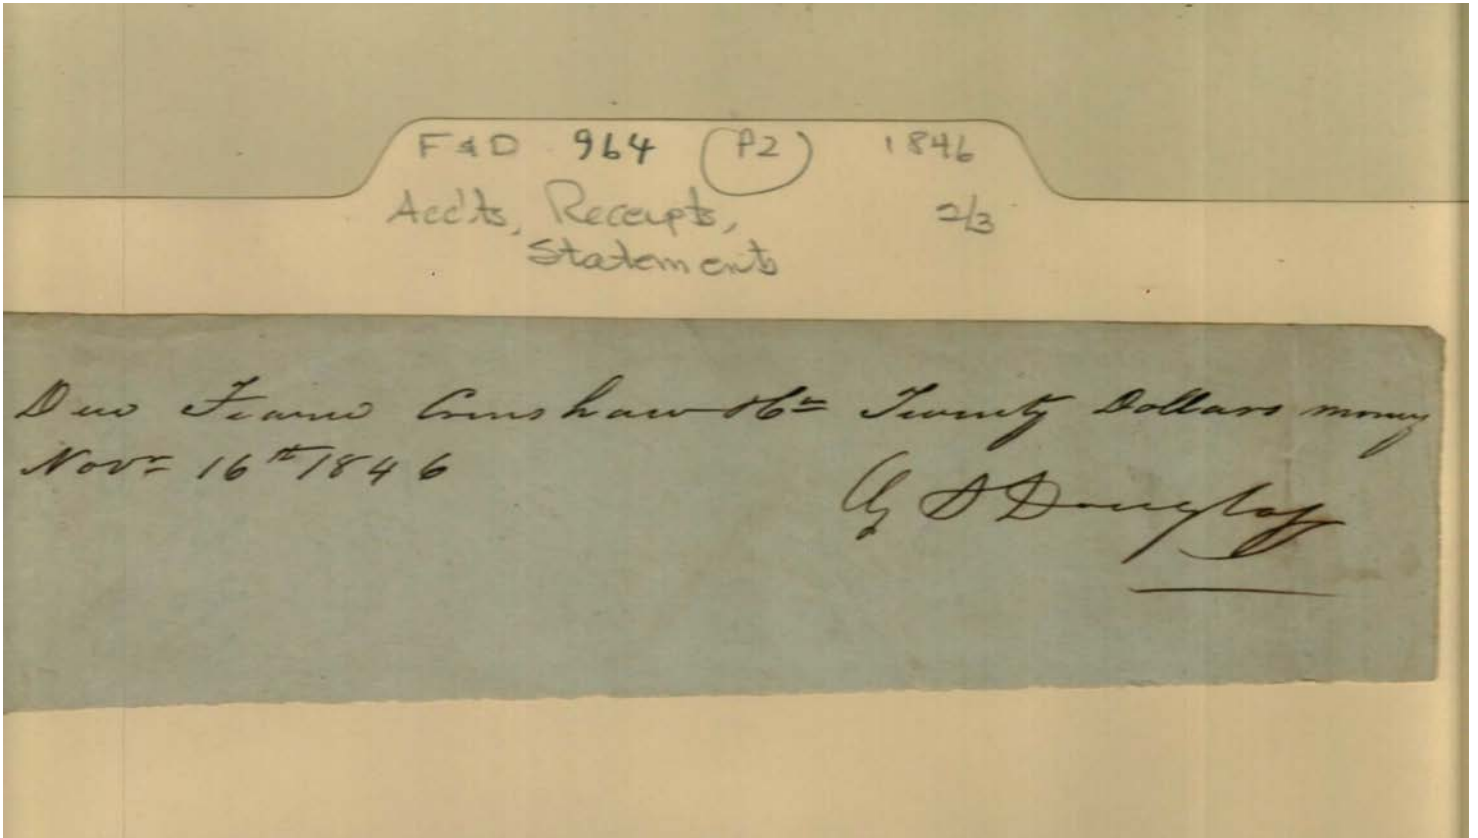 F & D 964 (P2) 1846
Acc'ts, Receipts, 2/3
Statements
Due Fearn Crenshaw & Co Twenty Dollars money
Novr 16th 1846
G S Douglass